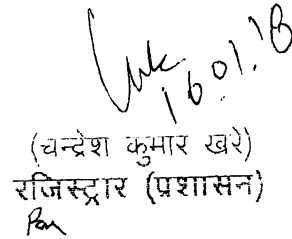 16.01.18
(चन्द्रेश कुमार खरे)
रजिस्ट्रार (प्रशासन)